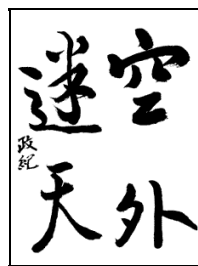 空外
迷天
政紀